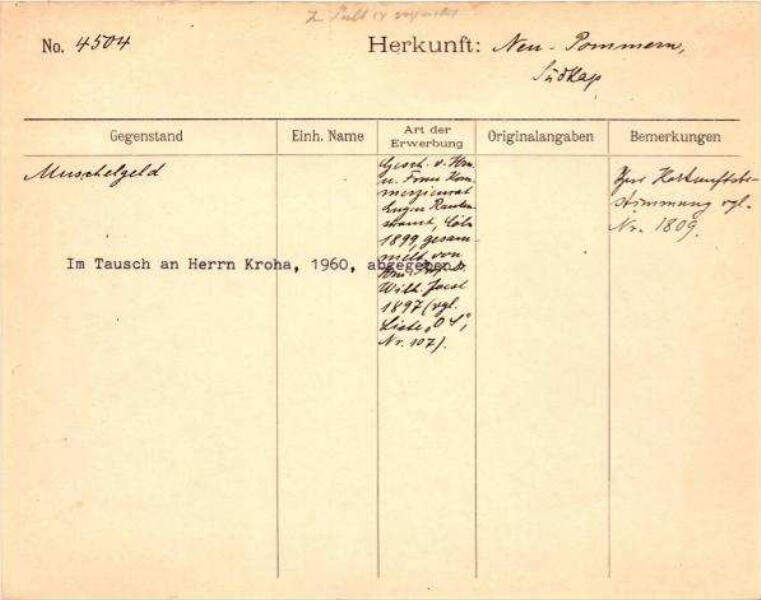 No. 4504
Herkunft: Neu-Pommern,
Südkap
Gegenstand
Einh. Name
Art der
Erwerbung
Originalangaben
Bemerkungen
Muschelgeld
Gesch. v. Hrn.
u. Frau Kom-
merzienrat
Eugen Rauten-
strauch, Cöln
1899, gesam-
melt von
Hrn. Prof. Dr.
Wilh. Joest
1897 (vgl.
Liste „O I",
Nr. 107).
Zur Herkunftsbe-
stimmung vgl.
Nr. 1809.
Im Tausch an Herrn Kroha, 1960, abgegeben.